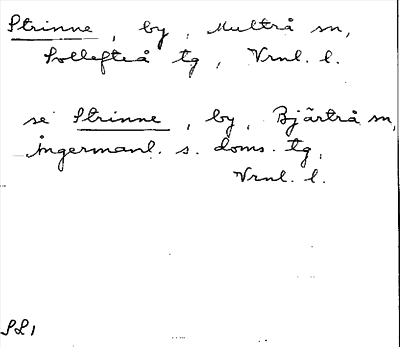 Strinne, by, Multrå sn,
Sollefteå tg, Vrnl. l.
se Strinne, by, Bjärtrå sn,
Ångermanl. s. doms. tg,
Vrnl. l.